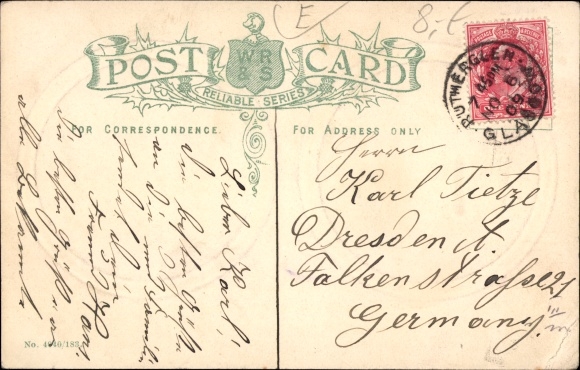 POST CARD
WR
& S
RELIABLE SERIES
FOR CORRESPONDENCE.
FOR ADDRESS ONLY
E
8,-
RUTHERGLEN
GLA
09
Lieber Karl,
Die besten Grüße
an Dich und Familie
sendet Dein
Freund Hans.
Die besten Grüße an
alle Bekannte
Herrn
Karl Tietze
Dresden A.
Falkenstrasse 21
Germany.
No. 4946/183